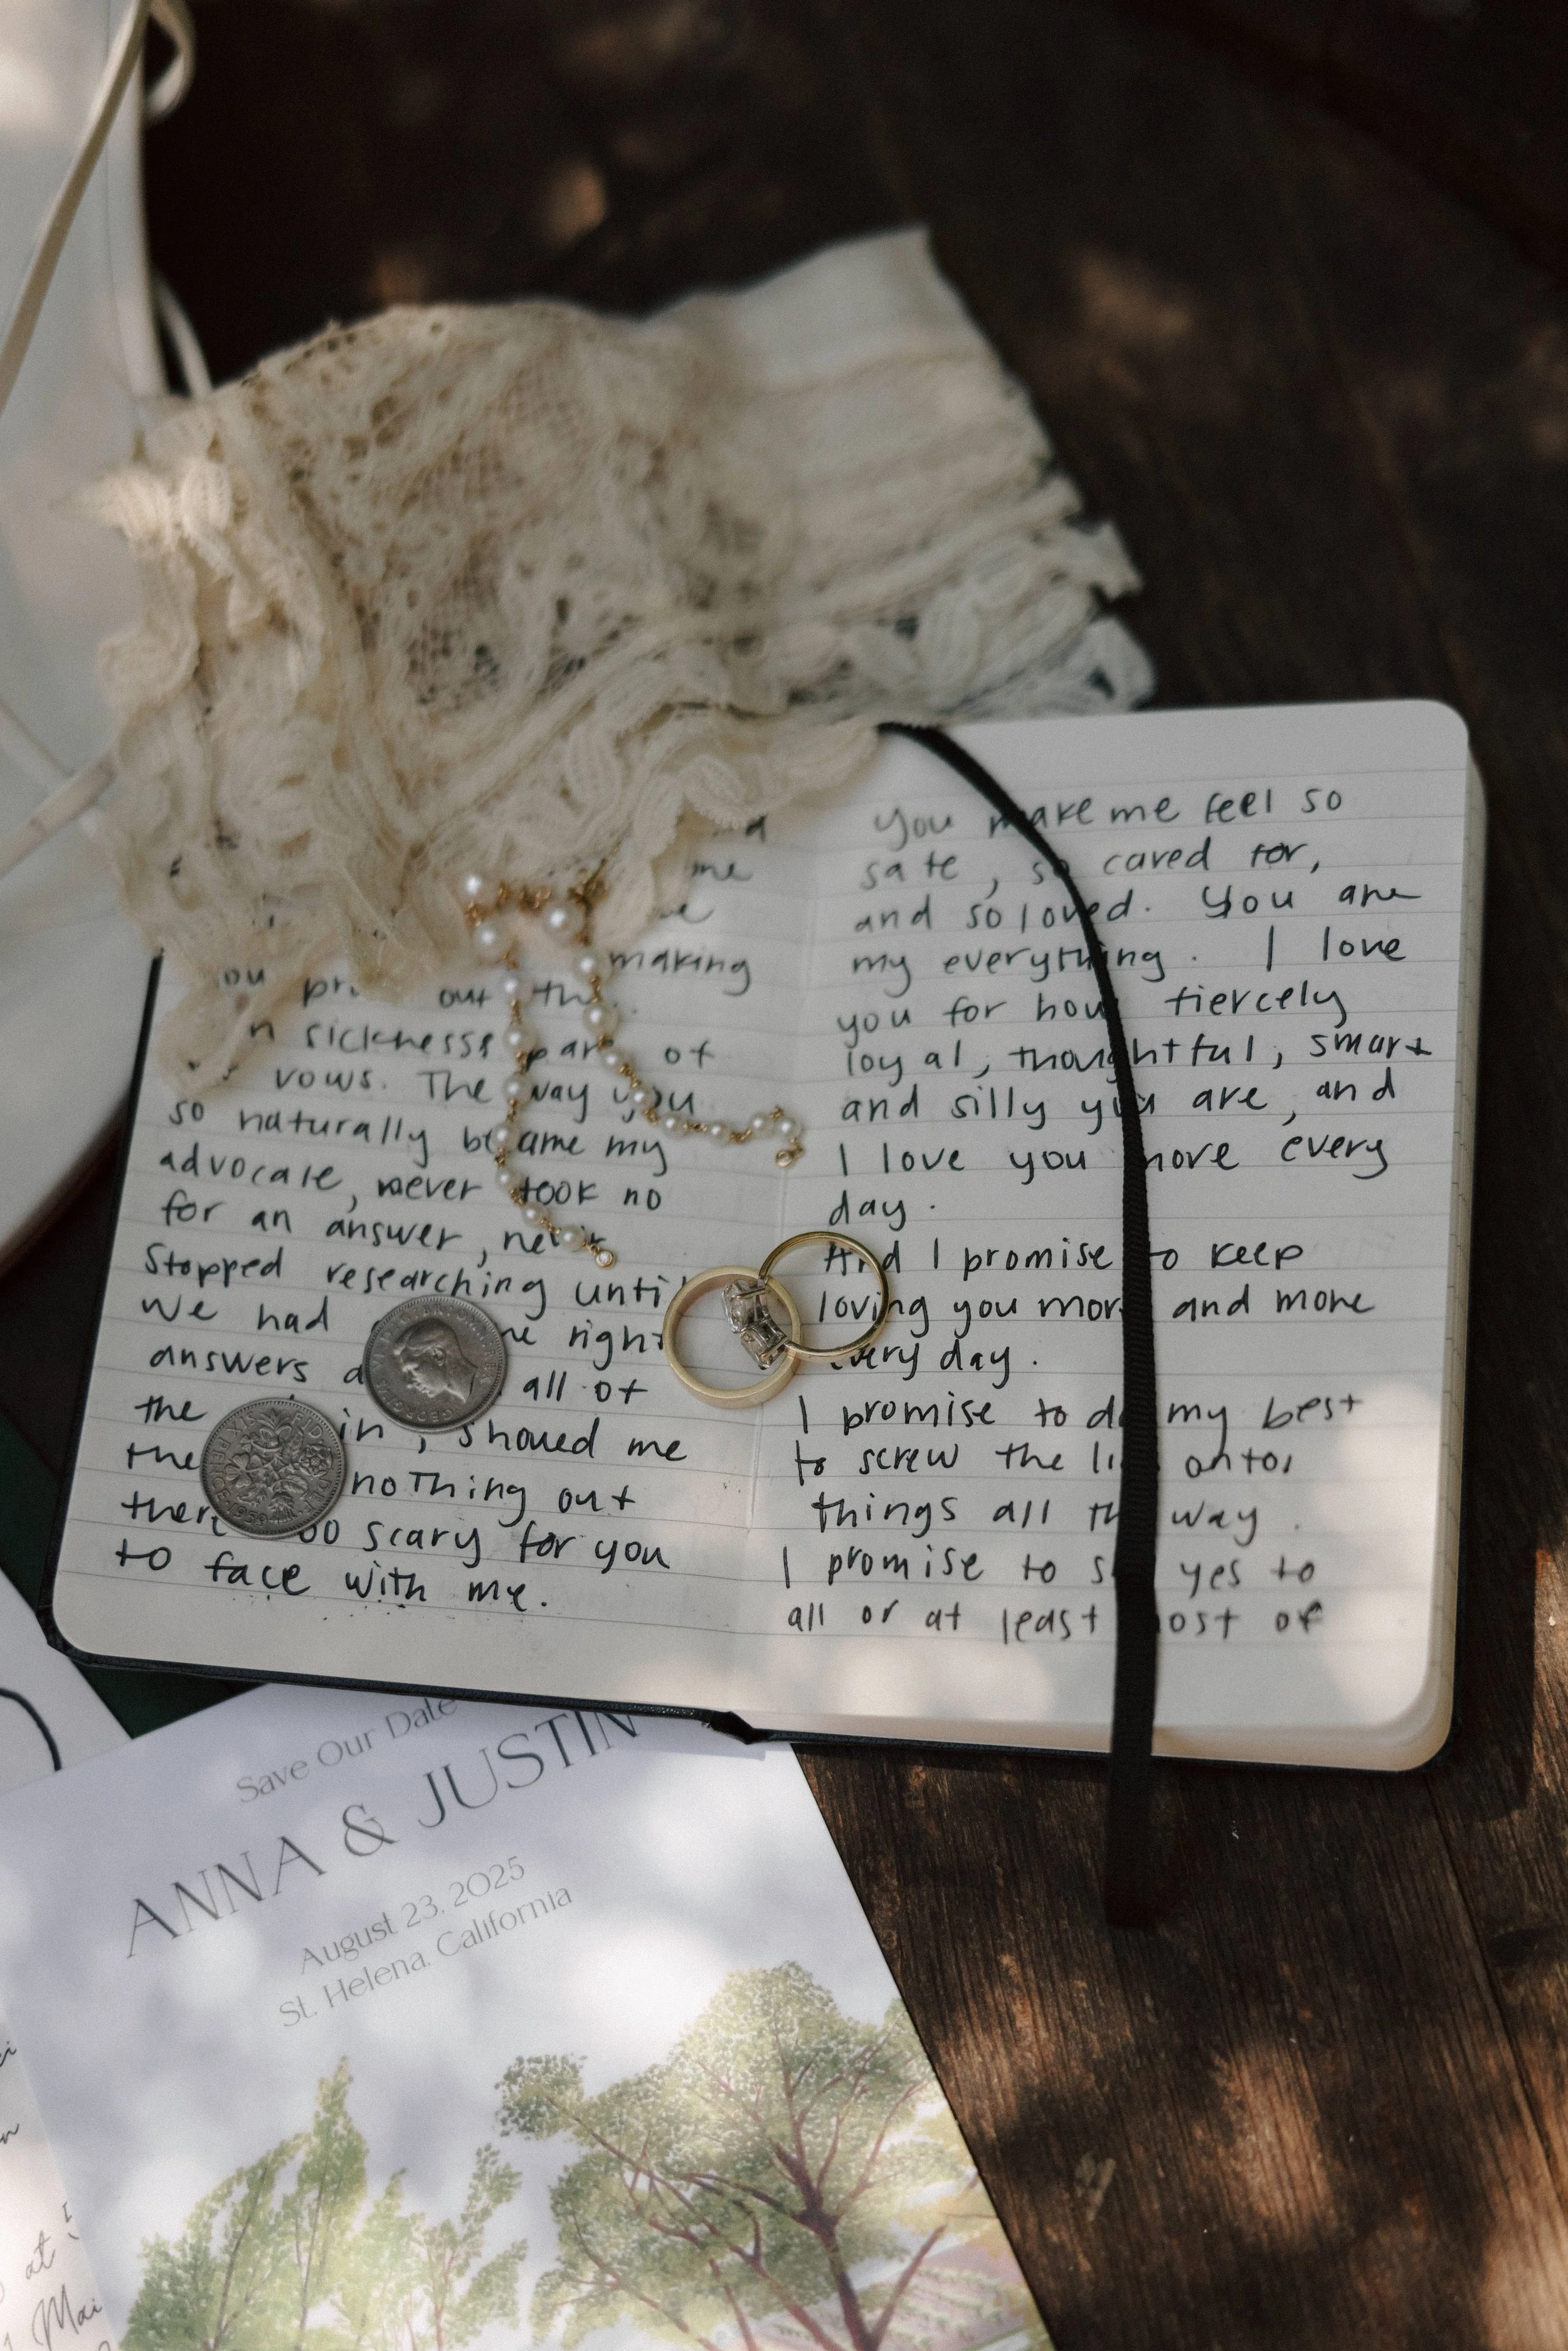 making
out
sicknesss part of
vows. The way you
so naturally became my
advocate, never took no
for an answer, never
stopped researching until
we had right
answers all of
the
the nothing out
there too scary for you
to face with me.
You make me feel so
safe, so cared for,
and so loved. You are
my everything. I love
you for how fiercely
loyal, thoughtful, smart
and silly you are, and
I love you more every
day.
And I promise to keep
loving you more and more
every day.
I promise to do my best
to screw the lids
things all the way.
I promise to say yes to
all or at least most of
Save Our Date
ANNA & JUSTIN
August 23, 2025
St. Helena, California
at
Mai